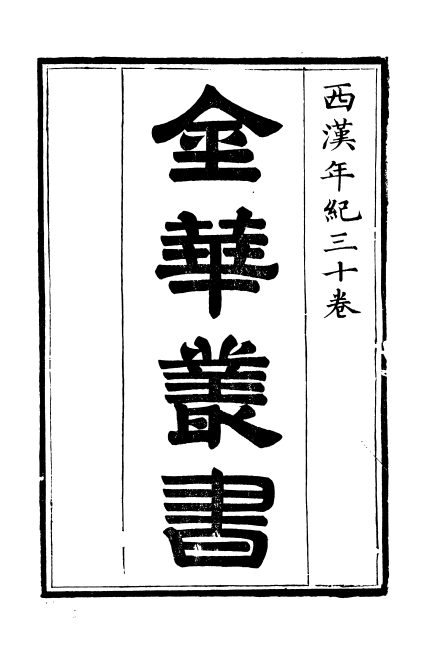 西漢年紀三十卷
金華叢書